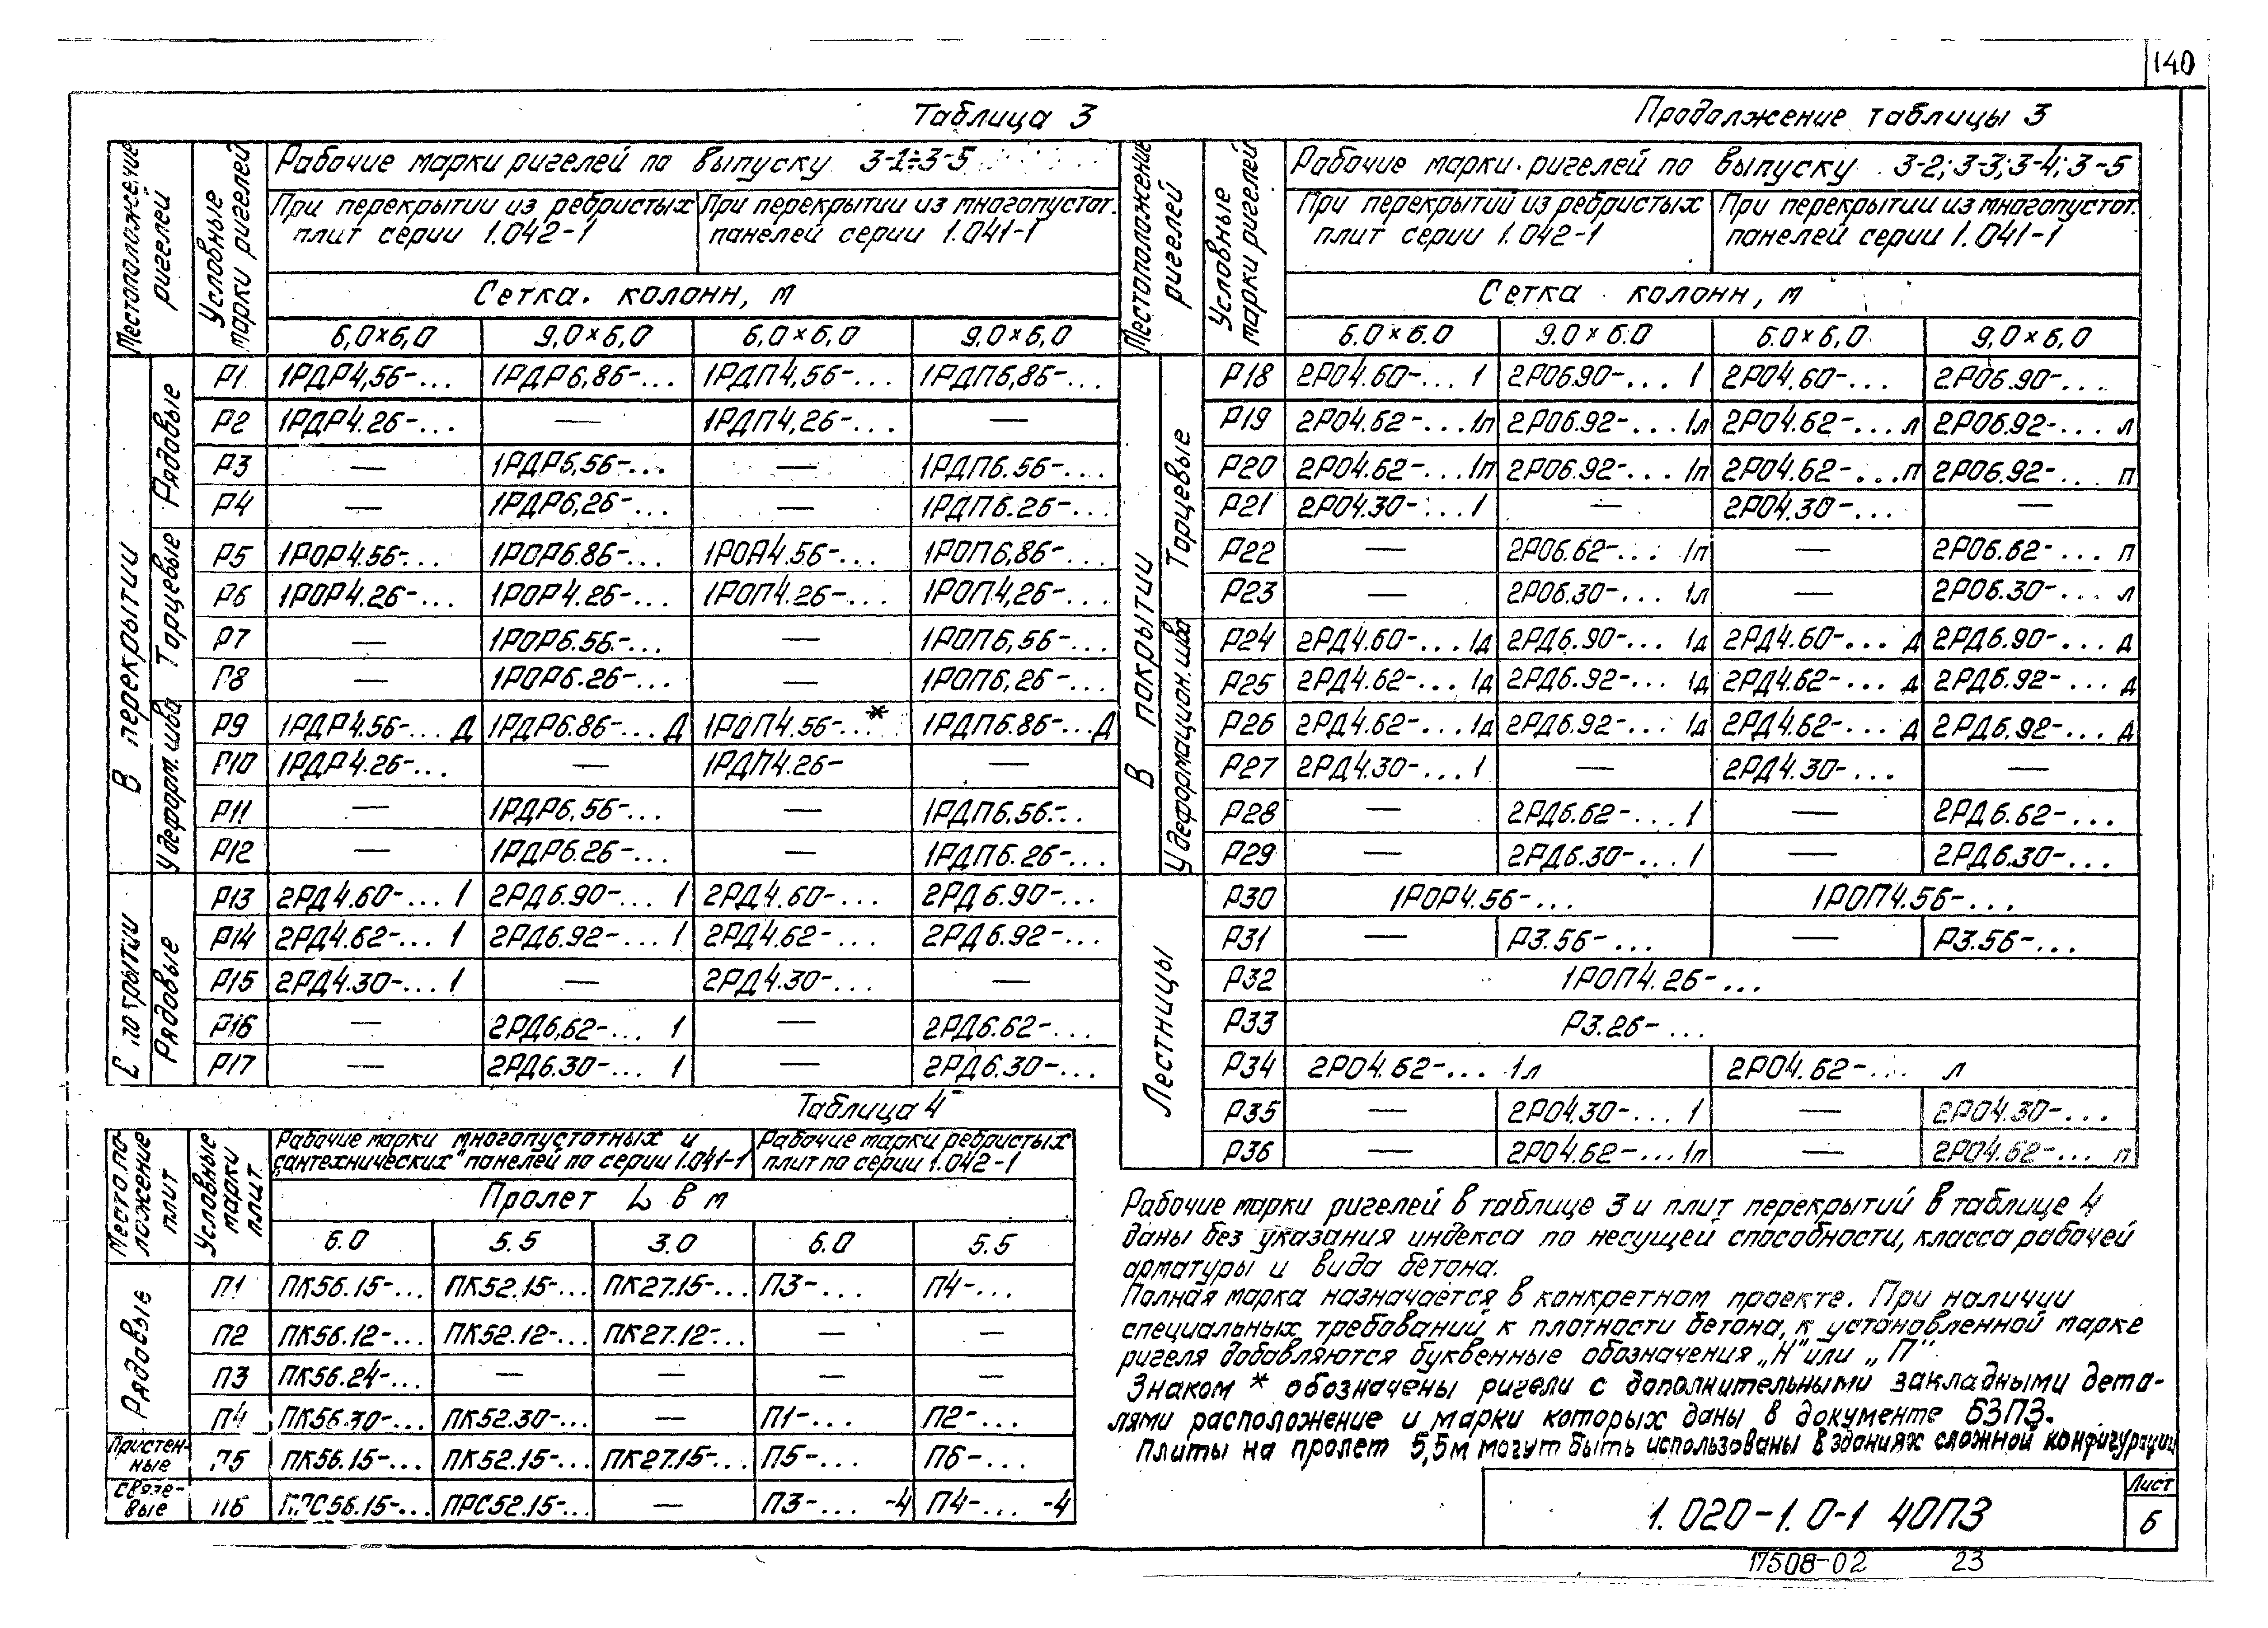 140
Таблица 3
Местоположение ригелей
Условные марки ригелей
Рабочие марки ригелей по выпуску 3-1÷3-5
При перекрытии из ребристых плит серии 1.042-1
При перекрытии из многопустот. панелей серии 1.041-1
Сетка колонн, м
6,0×6,0 9,0×6,0 6,0×6,0 9,0×6,0
В перекрытии
Рядовые
Р1 1РДР4,56-... 1РДР6,86-... 1РДП4,56-... 1РДП6,86-...
Р2 1РДР4.26-... — 1РДП4,26-... —
Р3 — 1РДР6,56-... — 1РДП6.56-...
Р4 — 1РДР6,26-... — 1РДП6.26-...
Торцевые
Р5 1РОР4.56-... 1РОР6.86-... 1РОП4.56-... 1РОП6,86-...
Р6 1РОР4.26-... 1РОР4.26-... 1РОП4.26-... 1РОП4,26-...
Р7 — 1РОР6.56-... — 1РОП6,56-...
Р8 — 1РОР6.26-... — 1РОП6,26-...
У деформ. шва
Р9 1РДР4.56-... Д 1РДР6.86-... Д 1РДП4.56-... * 1РДП6.86-... Д
Р10 1РДР4.26-... — 1РДП4.26- —
Р11 — 1РДР6,56-... — 1РДП6,56-...
Р12 — 1РДР6.26-... — 1РДП6.26-...
С покрытии
Рядовые
Р13 2РД4.60-... 1 2РД6.90-... 1 2РД4.60-... 2РД6.90-...
Р14 2РД4.62-... 1 2РД6.92-... 1 2РД4.62-... 2РД6.92-...
Р15 2РД4.30-... 1 — 2РД4.30-... —
Р16 — 2РД6,62-... 1 — 2РД6.62-...
Р17 — 2РД6.30-... 1 — 2РД6.30-...
Продолжение таблицы 3
Местоположение ригелей
Условные марки ригелей
Рабочие марки ригелей по выпуску 3-2; 3-3; 3-4; 3-5
При перекрытий из ребристых плит серии 1.042-1
При перекрытии из многопустот. панелей серии 1.041-1
Сетка колонн, м
6.0×6.0 9.0×6.0 6.0×6,0 9,0×6,0
В покрытии
Торцевые
Р18 2РО4.60-... 1 2РО6.90-... 1 2РО4.60-... 2РО6.90-...
Р19 2РО4.62-... 1п 2РО6.92-... 1л 2РО4.62-... л 2РО6.92-... л
Р20 2РО4.62-... 1п 2РО6.92-... 1п 2РО4.62-... п 2РО6.92-... п
Р21 2РО4.30-... 1 — 2РО4.30-... —
Р22 — 2РО6.62-... 1п — 2РО6.62-... п
Р23 — 2РО6.30-... 1л — 2РО6.30-... л
У деформацион. шва
Р24 2РД4.60-... 1д 2РД6.90-... 1д 2РД4.60-... д 2РД6.90-... д
Р25 2РД4.62-... 1д 2РД6.92-... 1д 2РД4.62-... д 2РД6.92-... д
Р26 2РД4.62-... 1д 2РД6.92-... 1д 2РД4.62-... д 2РД6.92-... д
Р27 2РД4.30-... 1 — 2РД4.30-... —
Р28 — 2РД6.62-... 1 — 2РД6.62-...
Р29 — 2РД6.30-... 1 — 2РД6.30-...
Лестницы
Р30 1РОР4.56-... 1РОП4.56-...
Р31 — Р3.56-... — Р3.56-...
Р32 1РОП4.26-...
Р33 Р3.26-...
Р34 2РО4.62-... 1л 2РО4.62-... л
Р35 — 2РО4.30-... 1 — 2РО4.30-...
Р36 — 2РО4.62-... 1п — 2РО4.62-... п
Таблица 4
Местоположение плит
Условные марки плит
Рабочие марки многопустотных и
сантехнических" панелей по серии 1.041-1
Рабочие марки ребристых
плит по серии 1.042-1
Пролет L в м
6.0 5.5 3.0 6.0 5.5
Рядовые
П1 ПК56.15-... ПК52.15-... ПК27.15-... П3-... П4-...
П2 ПК56.12-... ПК52.12-... ПК27.12-... — —
П3 ПК56.24-... — — — —
П4 ПК56.30-... ПК52.30-... — П1-... П2-...
Пристенные
П5 ПК56.15-... ПК52.15-... ПК27.15-... П5-... П6-...
Связевые
П6 ПРС56.15-... ПРС52.15-... — П3-... -4 П4-... -4
Рабочие марки ригелей в таблице 3 и плит перекрытий в таблице 4
даны без указания индекса по несущей способности, класса рабочей
арматуры и вида бетона.
Полная марка назначается в конкретном проекте. При наличии
специальных требований к плотности бетона, к установленной марке
ригеля добавляются буквенные обозначения „Н" или „П"
Знаком * обозначены ригели с дополнительными закладными дета-
лями расположение и марки которых даны в документе 63ПЗ.
Плиты на пролет 5,5м могут быть использованы в зданиях сложной конфигурации
1.020-1.0-1 40ПЗ
Лист
6
17508-02 23